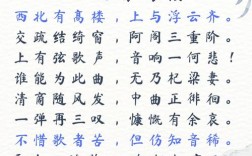 西北有高楼，上与浮云齐。
交疏结绮窗，阿阁三重阶。
上有弦歌声，音响一何悲！
谁能为此曲，无乃杞梁妻。
清商随风发，中曲正徘徊。
一弹再三叹，慷慨有余哀。
不惜歌者苦，但伤知音稀。